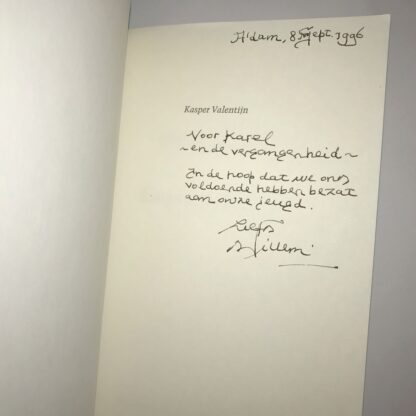 A'dam, 8 sept. 1996
Kasper Valentijn
Voor Karel
~ en de vergangenheid ~
In de hoop dat we ons
voldoende hebben bezat
aan onze jeugd.
Liefs
Willem